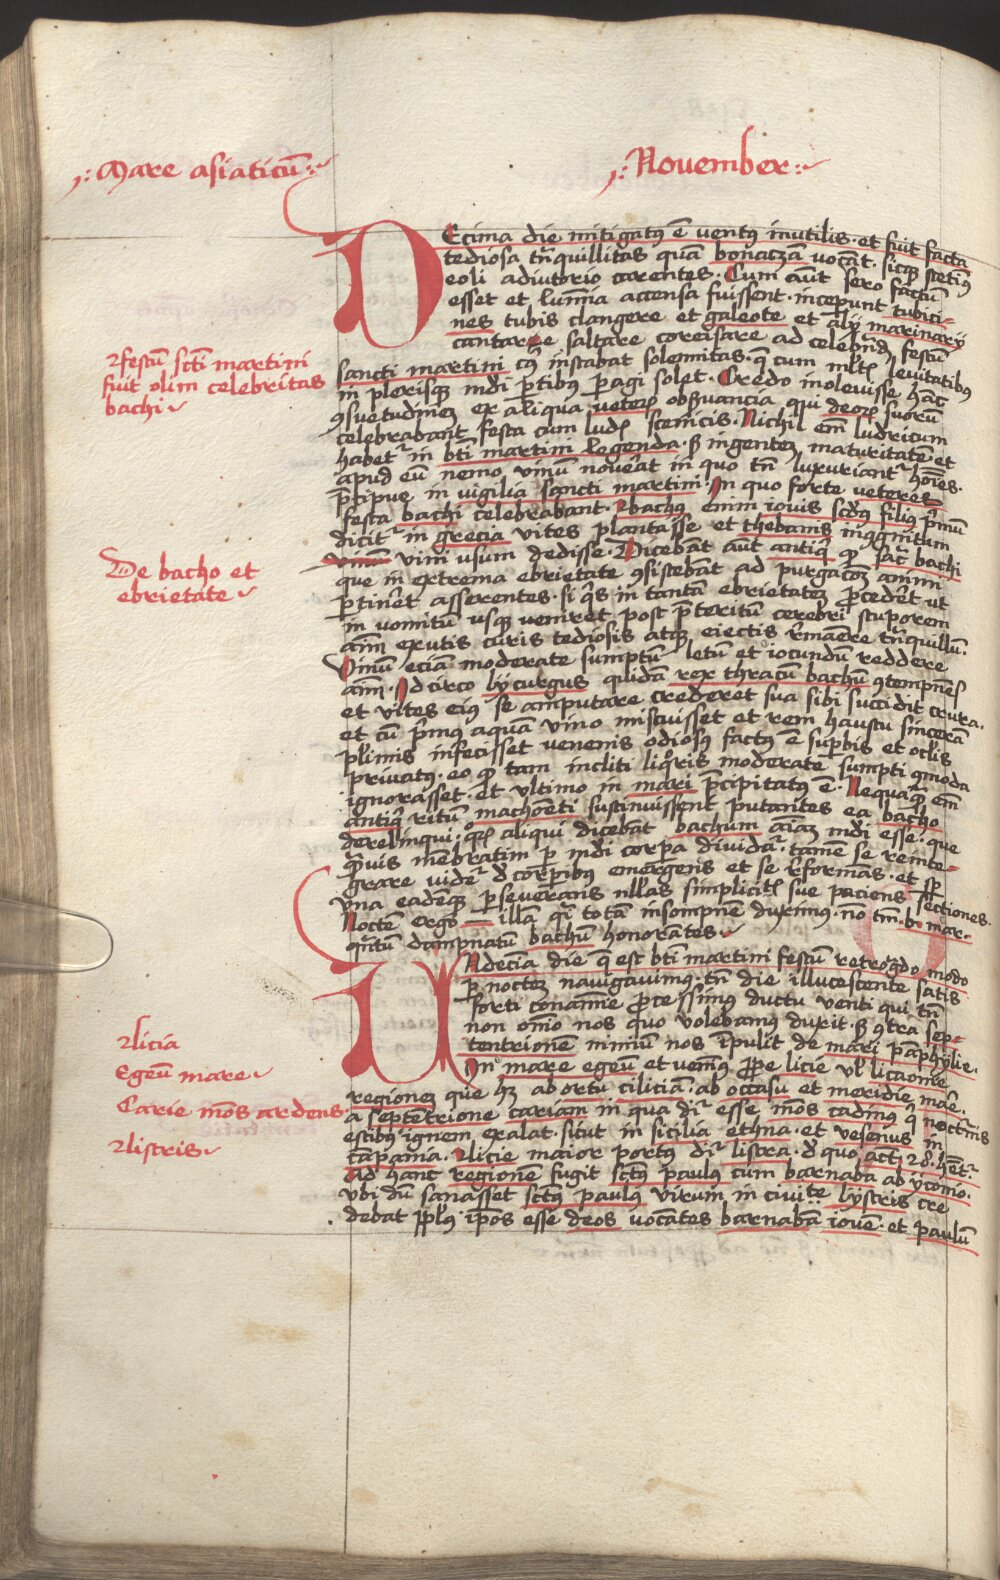 Mare asiaticū
November
DEcima die mitigatꝰ ē ventꝰ inutilis · et fuit facta
tediosa trāquillitas quā bonaczam vocāt · sicqꝫ stetimꝰ
eoli adiutorio carentes · Cum aūt sero factū
esset et lumīa accensa fuissent · incepunt tubici-
nes tubis clangere et galeote et alij marinarij
cantare saltare coreisare ad celebrād festū
sancti martini cuiꝰ instabat solennitas · q̄ cum mltis levitatibꝰ
in plerisqꝫ mūdi ꝑtibus ꝑagi solet · Credo inolevisse hāc
ꝯsuetudinez ex aliqua veterꝝ obseruancia qui deorꝝ suorū
celebrabant festa cum ludis scenicis · Nichil em̄ ludricum
habet in bti martini legenda · sꝫ ingentez maturitatē et
apud eū nemo vinū nouerat in quo tn̄ luxuriant hoīes ·
p̄cipue in vigilia sancti martini · In quo forte veteres
festa bachi celebrabant · Bachꝰ enim iouis scd̄s filiꝰ p̄mū
dicit in grecia vites plantasse et thebanis incognitum
vinū vini usum dedisse · Dicebāt aūt antiqi qꝫ sac̄ bachi
que in extrema ebrietate ꝯsistebāt ad purgacōꝫ animi
ꝑtinet asserentes · si qis in tantā ebrietatez ꝓcedēt ut
in vomitū usqꝫ veniret post p̄teritū cerebri stuporem
aīm exutis curis tediosis atqꝫ eiectis rēmāere trāquillū ·
Vinū eciam moderate sumptū letū et iocundū reddere
aīm · Idcirco lycurgus quidā rex thracū bachū ꝯtempnēs
et vites eius se amputare crederet sua sibi succidit crura ·
et cū p̄mus aquā vino miscuisset et rem haustu sincerā
plimis infecisset venenis odiosꝰ factꝰ ē suꝑbis et oclis
privatꝰ · eo qꝫ tam incliti liqris moderate sumpti qmoda
ignorasset · et ultimo in mari p̄cipitatꝰ ē · Nequaqꝫ em̄
antiqi ritum machoēti sustinuissent putantes ea bacho
derelinqui · qꝫ aliqui dicebāt bachum aīaz mūdi esse · que
qꝫuis mēbratim ꝑ mūdi corꝑa dividat · tamē se reinte-
grare videt d corꝑibus emergens et se reformās · et sꝑ
una eadēqꝫ ꝑseuerans nllas simplicitis sue paciens sectiones ·
Noctē ergo illā qi totā insompnē duximus · nō tm̄ b · mar ·
qntū dampnatū bachū honorātes
UNdecīa die q est bti martini festū retrogdo modo
ꝑ noctez nauigauimus · tn̄ die illucescente satis
forti conamīe ꝓcessimꝰ ductu venti qui tn̄
non om̄io nos quo volebamus duxit · sꝫ ꝯtra sep-
tentrionem nimiū nos īpulit de mari pāphylie ·
In mare egeū et venimꝰ ꝓpe licie ul licaonie
regionez que hꝫ ab ortu ciliciā · ab occasu et meridie mare ·
a septētrione cariam in qua dr esse mōs cadinus q nocturnis
estibus ignem exalat · sicut in sicilia ethna · et vesevus in
cāpania · Licie maior portus dr listra · d quo act · 28 · hēt ·
Ad hanc regionē fugit sctūs paulus cum barnaba ab yconio ·
ubi dū sanasset sctūs paulus virum in civite lystris cre
debat pplus ipos esse deos vocātes barnabā iovē · et paulū
festū scti martini
fuit olim celebritas
bachi
De bacho et
ebrietate
licia
Egeū mare
Carie mōs ardens
listris